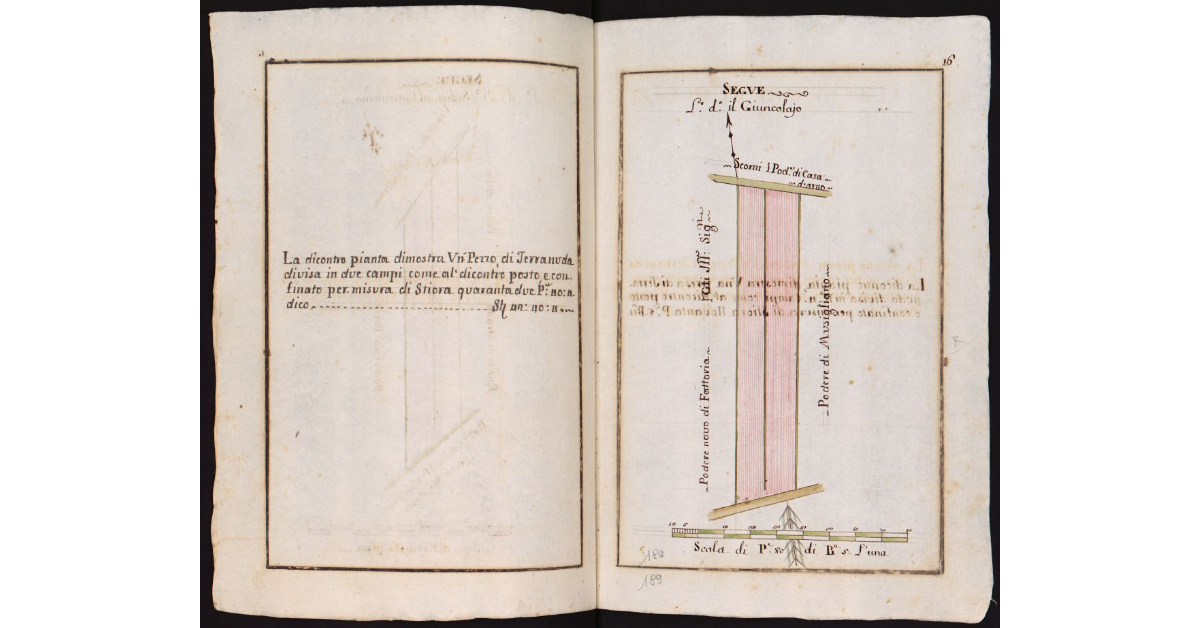 La dicontro pianta dimostra Vn Pezzo, di Terra nuda
divisa in due campi come al dicontro posto e con-
finato per misura di Stiora quaranta due P.e 40: n.
dico
16
SEGVE
L.o d.o il Giuncolajo
Scorni I Pod.e di Casa
d'arno
Podere novo di Fattoria
Sig.ri
Podere di Musigliano
10 5
Scala di P.e 80 di B.a 5 l'una
189
189